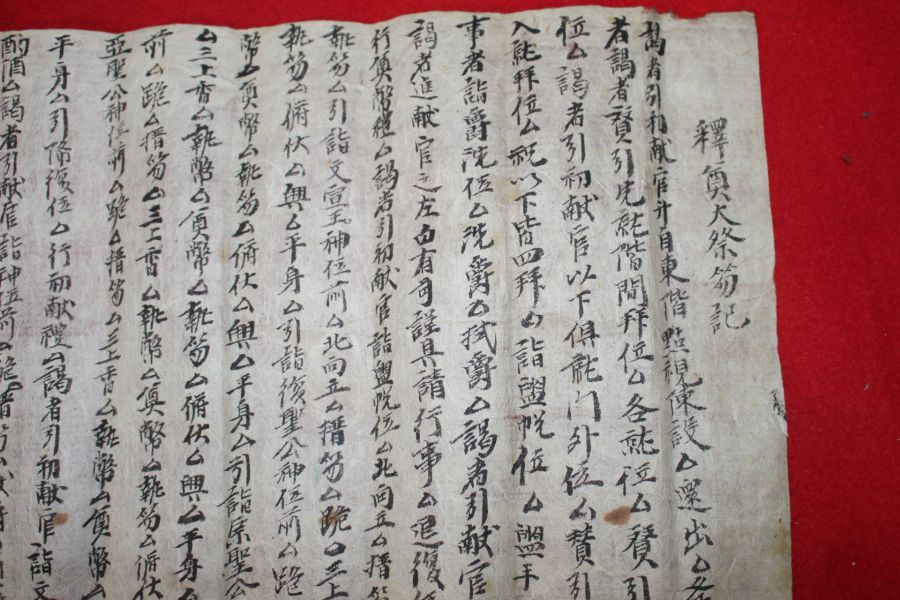 釋奠大祭笏記
謁者引初献官升自東階點視陳設△還出△各
者謁者賛引先就階間拜位△各就位△賛引
位△謁者引初献官以下俱就门外位△賛引
入就拜位△祝以下皆四拜△詣盥帨位△盥手
事者詣爵洗位△洗爵△拭爵△謁者引献官
謁者進献官之左白有司謹具請行事△退復
行奠幣禮△謁者引初献官詣盥帨位△北向立△搢笏
執笏△引詣文宣王神位前△北向立△搢笏△跪△三上
執笏△俯伏△興△平身△引詣復聖公神位前△跪
幣△奠幣△執笏△俯伏△興△平身△引詣宗聖公
△三上香△執幣△奠幣△執笏△俯伏△興△平身
前△跪△搢笏△三上香△執幣△奠幣△執笏△俯伏
亞聖公神位前△跪△搢笏△三上香△執幣△奠幣
平身△引降復位△行初献禮△謁者引初献官詣文
酌酒△謁者引献官詣神位前△跪△搢笏△